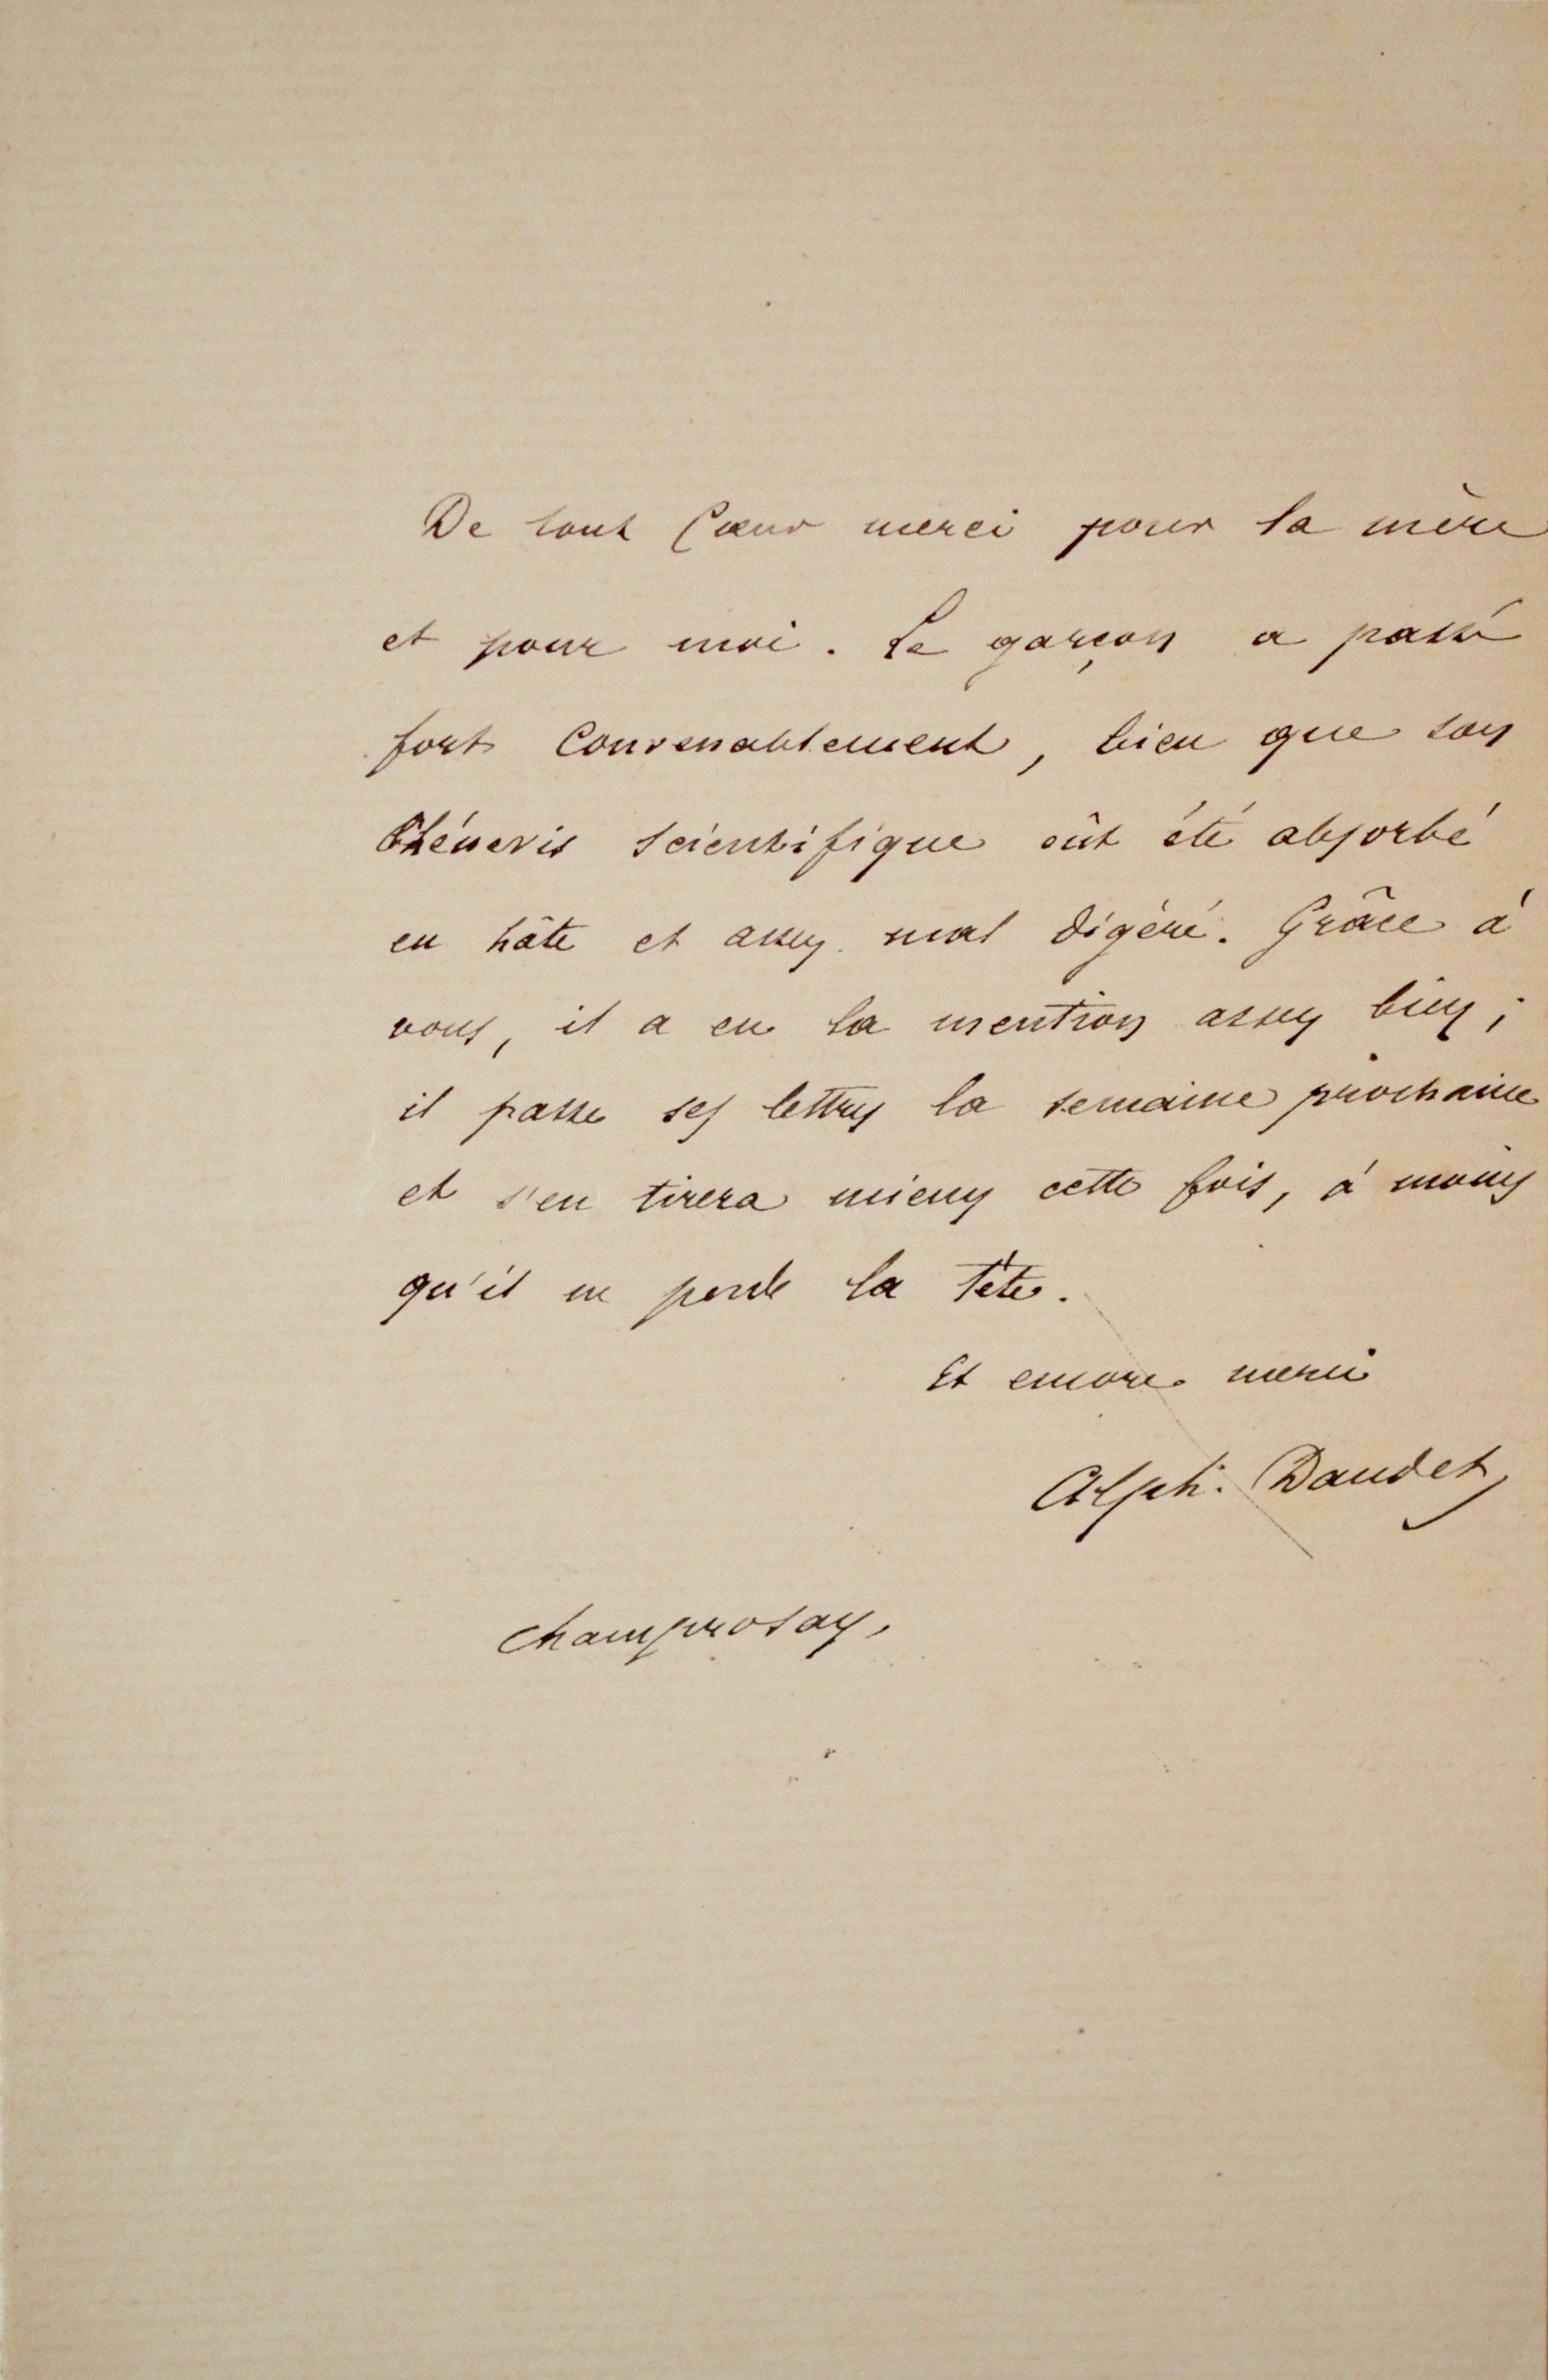 De tout Cœur merci pour la mère
et pour moi. Le garçon a passé
fort Convenablement, bien que son
Chénevis scientifique eût été absorbé
en hâte et assez mal digéré. Grâce à
vous, il a eu la mention assez bien ;
il passe ses lettres la semaine prochaine
et s'en tirera mieux cette fois, à moins
qu'il ne perde la Tête.
Et encore merci
Alph. Daudet
Champrosay.